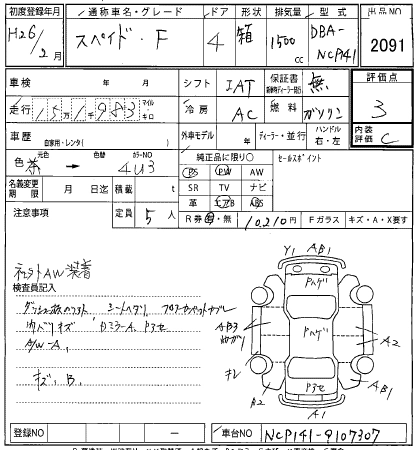 初度登録年月 通称車名・グレード ドア 形状 排気量 型式 出品NO
H26/2月 スペイド・F 4 箱 1500cc DBA-NCP141 2091
車検 年 月 シフト IAT 保証書 無 評価点
走行 15万1千983 マイル キロ 冷房 AC 燃料 ガソリン 3
車歴 自家用・レンタ( ) 外車モデル 年 ディーラー・並行 ハンドル 右・左 内装評価 C
色 元色 茶 → 色替 カラーNO 4U3 純正品に限り○ セールスポイント
PS PW AW
名義変更期限 月 日迄 積載 t SR TV ナビ
革 エアB ABS
注意事項 定員 5人 R券 有・無 10,210円 Fガラス キズ・A・X要す
社外AW装着
検査員記入
シートヘタリ
内ハリキズ
A/W-A、
キズ、B、
Y1 AB1
Pハゲ
AB3
Pハゲ
A2
キレ
B2
Pアセ
AB1
A1
登録NO － 車台NO NCP141-9107307